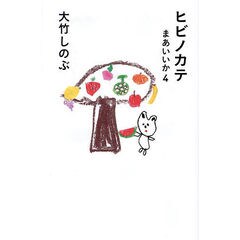 ヒビノカテ
まあいいか4
大竹しのぶ